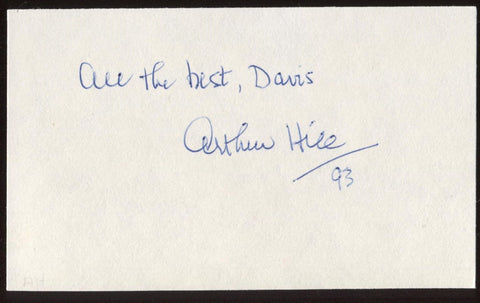 All the best, Davis
Arthur Hill
93
AH